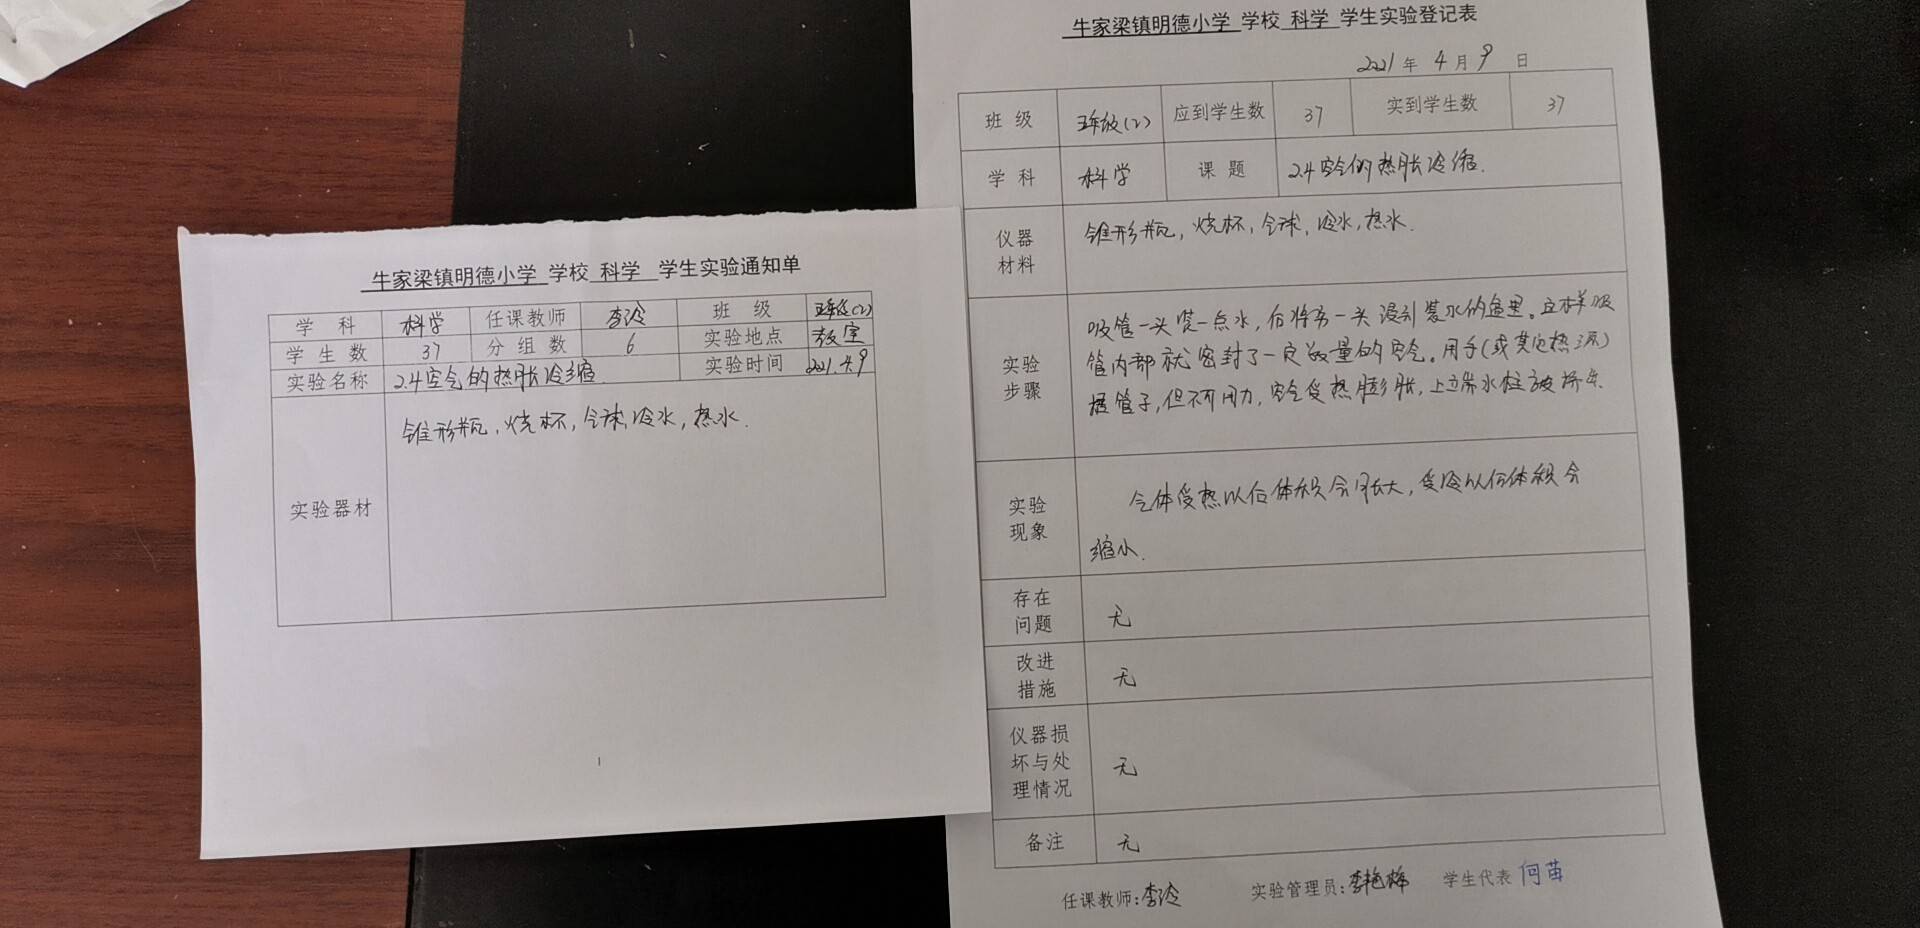 牛家梁镇明德小学 学校 科学 学生实验通知单
学科 科学 任课教师 班级 五年级(2)
学生数 37 分组数 6 实验地点 教室
实验名称 2.4空气的热胀冷缩 实验时间 2021.4.9
实验器材 锥形瓶,烧杯,气球,冷水,热水.
牛家梁镇明德小学 学校 科学 学生实验登记表
2021年4月9日
班级 五年级(2) 应到学生数 37 实到学生数 37
学科 科学 课题 2.4空气的热胀冷缩.
仪器
材料
锥形瓶,烧杯,气球,冷水,热水.
实验
步骤
吸管一头装一点水,后将另一头浸到装水的盒里。这样吸
管内部就密封了一定数量的空气。用手(或其他热源)
握管子,但不可用力,空气受热膨胀,上端水柱被挤出.
实验
现象
气体受热以后体积会胀大,受冷以后体积会
缩小.
存在
问题
无
改进
措施
无
仪器损
坏与处
理情况
无
备注 无
任课教师: 实验管理员:李艳梅 学生代表 何苗